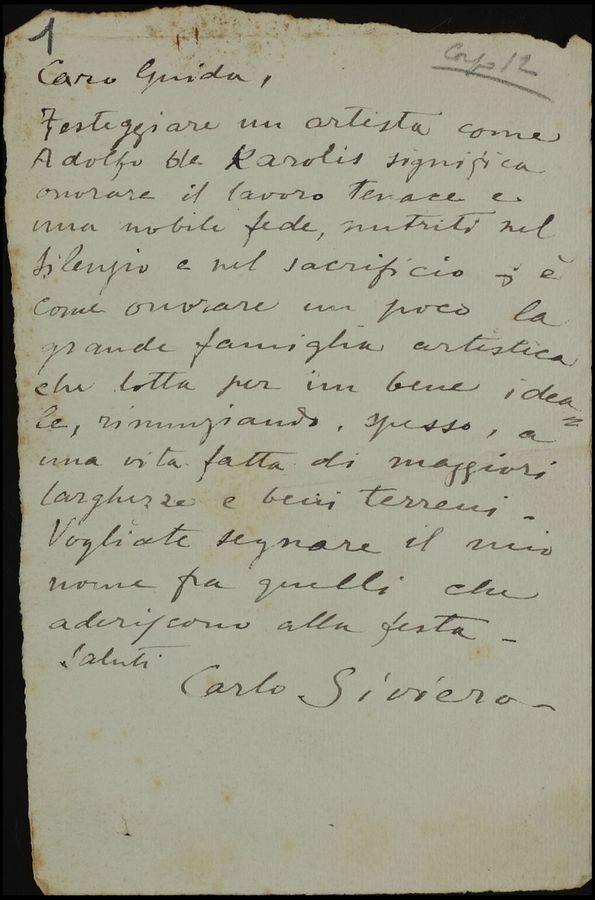 1
Corp 12
Caro Guida,
Festeggiare un artista come
Adolfo de Karolis significa
onorare il lavoro tenace e
una nobile fede, nutriti nel
silenzio e nel sacrificio è
come onorare un poco la
grande famiglia artistica
che lotta per un bene idea=
le, rinunziando, spesso, a
una vita fatta di maggiori
larghezze e beni terreni.
Vogliate segnare il mio
nome fra quelli che
aderiscono alla festa -
Saluti
Carlo Siviero -